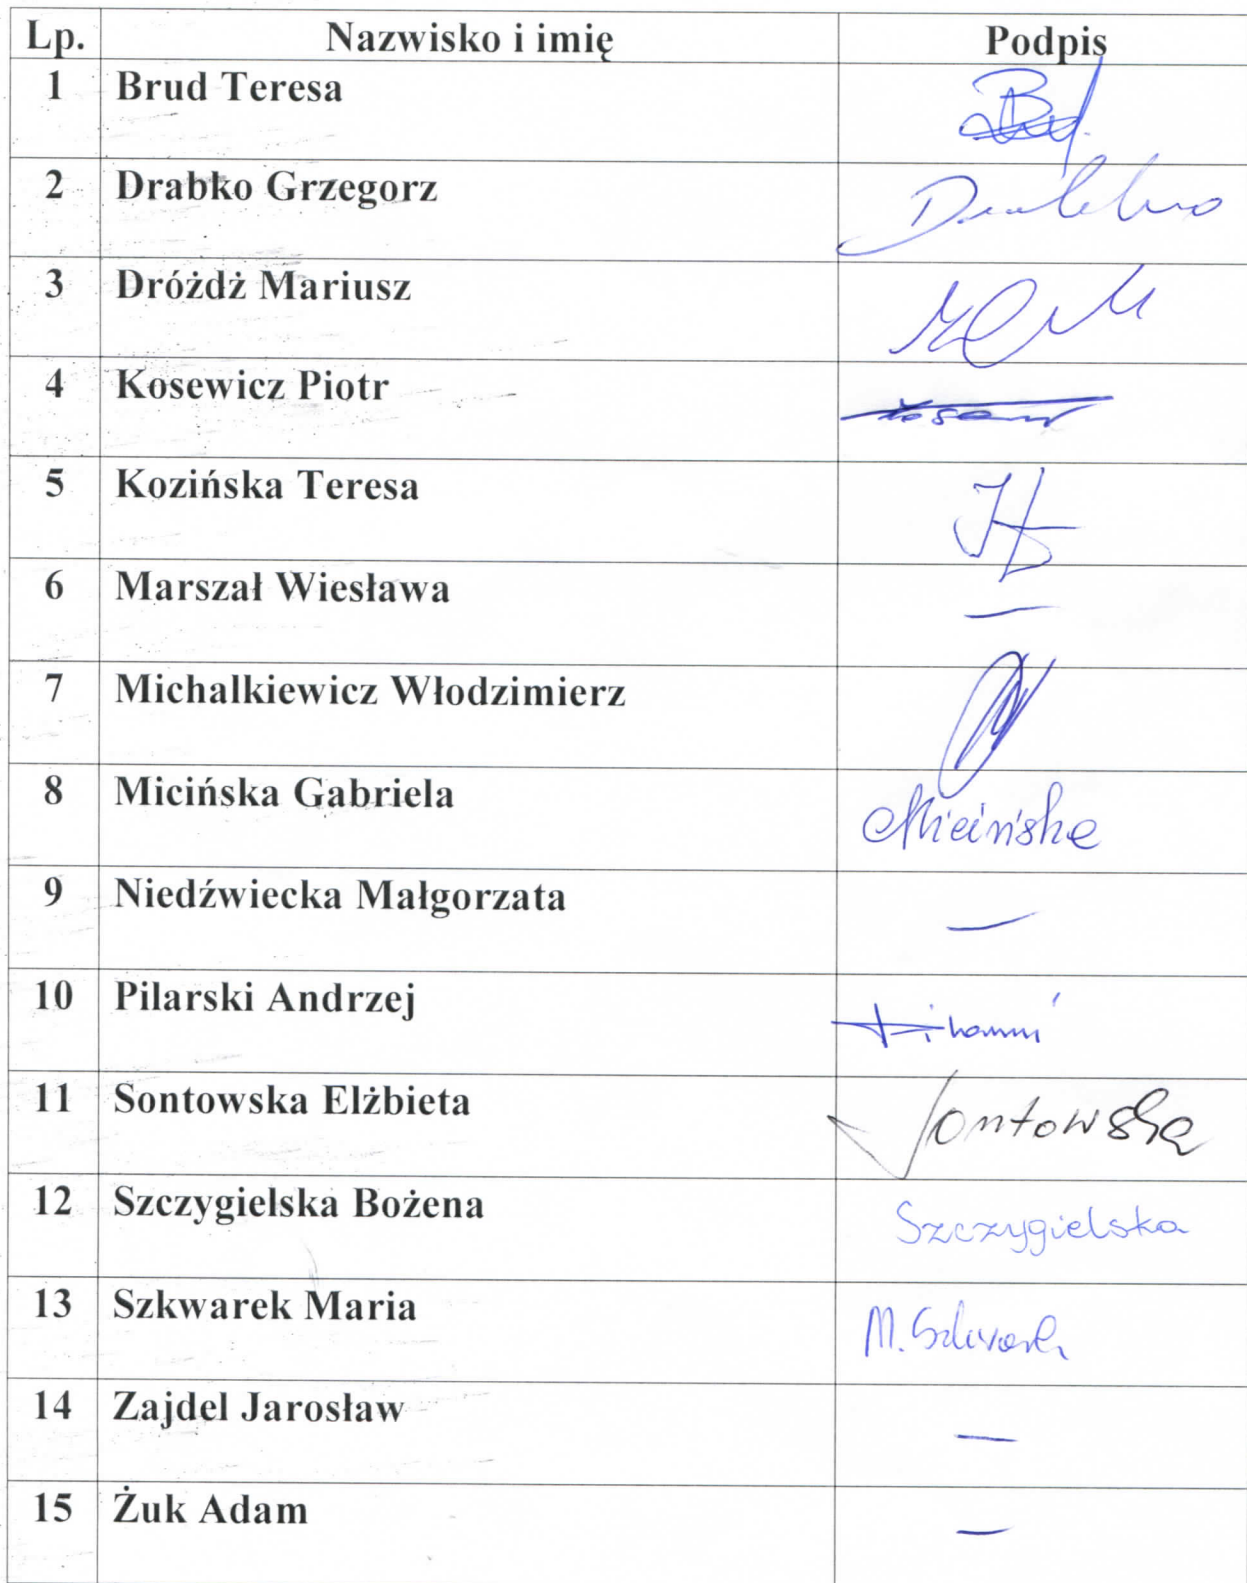 Lp. Nazwisko i imię Podpis
1 Brud Teresa
2 Drabko Grzegorz
3 Dróżdż Mariusz
4 Kosewicz Piotr
5 Kozińska Teresa
6 Marszał Wiesława —
7 Michalkiewicz Włodzimierz
8 Micińska Gabriela Micińska
9 Niedźwiecka Małgorzata —
10 Pilarski Andrzej
11 Sontowska Elżbieta Sontowska
12 Szczygielska Bożena Szczygielska
13 Szkwarek Maria M. Szkwarek
14 Zajdel Jarosław —
15 Żuk Adam —